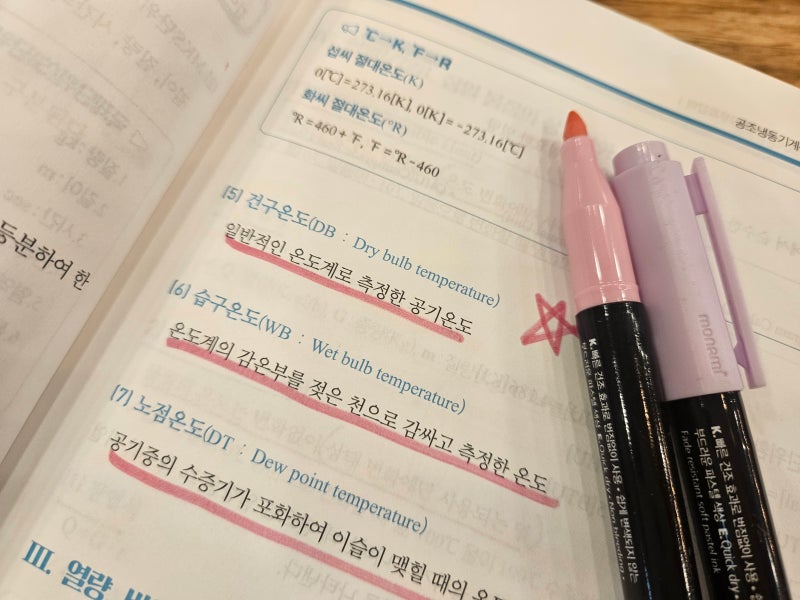 ℃→K, ℉→R
섭씨 절대온도(K)
0[℃]=273.16[K], 0[K]=-273.16[℃]
화씨 절대온도(°R)
°R=460+℉, ℉=°R-460
공조냉동기계
등분하여 한
[5] 건구온도(DB : Dry bulb temperature)
일반적인 온도계로 측정한 공기온도
[6] 습구온도(WB : Wet bulb temperature)
온도계의 감온부를 젖은 천으로 감싸고 측정한 온도
[7] 노점온도(DT : Dew point temperature)
공기중의 수증기가 포화하여 이슬이 맺힐 때의 온
III. 열량
monami
K.빠른 건조 효과로 번짐없이 사용 • 쉽게 변색되지 않는
부드러운 파스텔 색상 E.Quick dry. Non bleeding •
K.빠른 건조 효과로 번짐없이 사용 •
부드러운 파스텔 색상 E.Quick dry •
Fade resistant soft pastel ink